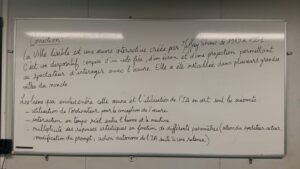 Correction
La Ville lisible est une œuvre interactive créée par Jeffrey Shaw de 1989 à 1991
C'est un dispositif composé d'un vélo fixe, d'un écran et d'une projection permettant
au spectateur d'interagir avec l'œuvre. Elle a été installée dans plusieurs grandes
villes du monde.
Les liens que entre cette œuvre et l'utilisation de l'IA en art sont les suivants
- utilisation de l'ordinateur pour la conception de l'œuvre
- interaction en temps réel entre l'homme et la machine
- multiplicité des réponses artistiques en fonction de différents paramètres (action du spectateur acteur,
modification du prompt, action autonome de l'IA suite à une relance)